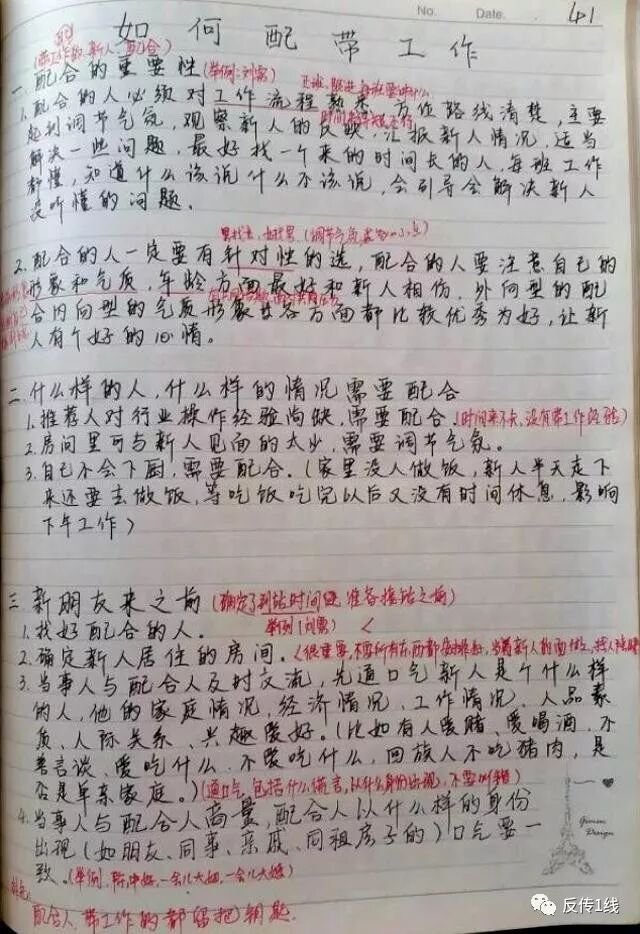 No. Date. 41
如何配带工作
(带工作的、新人、配合)
一.配合的重要性(举例:刘寡)
1.配合的人必须对工作流程熟悉,方位路线清楚,主要
起到调节气氛,观察新人的反映,汇报新人情况,适当
解决一些问题,最好找一个来的时间长的人,每班工作
都懂,知道什么该说什么不该说,会引导会解决新人
没听懂的问题。
2.配合的人一定要有针对性的选,配合的人要注意自己的
形象和气质,年龄方面最好和新人相仿,外向型的配
合内向型的气质形象等各方面都比较优秀为好,让新
人有个好的心情。
二.什么样的人,什么样的情况需要配合
1.推荐人对行业操作经验尚缺,需要配合(时间来不久、没有带工作经验)
2.房间里可与新人见面的太少,需要调节气氛。
3.自己不会下厨,需要配合。(家里没人做饭,新人半天走下
来还要去做饭,等吃饭吃完以后又没有时间休息,影响
下午工作)
三.新朋友来之前(确定了到站时间,准备接站之前)
1.找好配合的人。 举例(刘寡)
2.确定新人居住的房间。
3.当事人与配合人及时交流,先通口气新人是个什么样
的人,他的家庭情况、经济情况、工作情况、人品素
质、人际关系、兴趣爱好。(比如有人爱赌、爱喝酒、不
善言谈、爱吃什么、不爱吃什么,回族人不吃猪肉,是
否是单亲家庭。)(通口气,包括什么谎言,以什么身份出现,不要叫错)
4.当事人与配合人商量,配合人以什么样的身份
出现(如朋友、同事、亲戚、同租房子的)口气要一
致。
配合人、带工作的都留把钥匙.
Design
反传1线